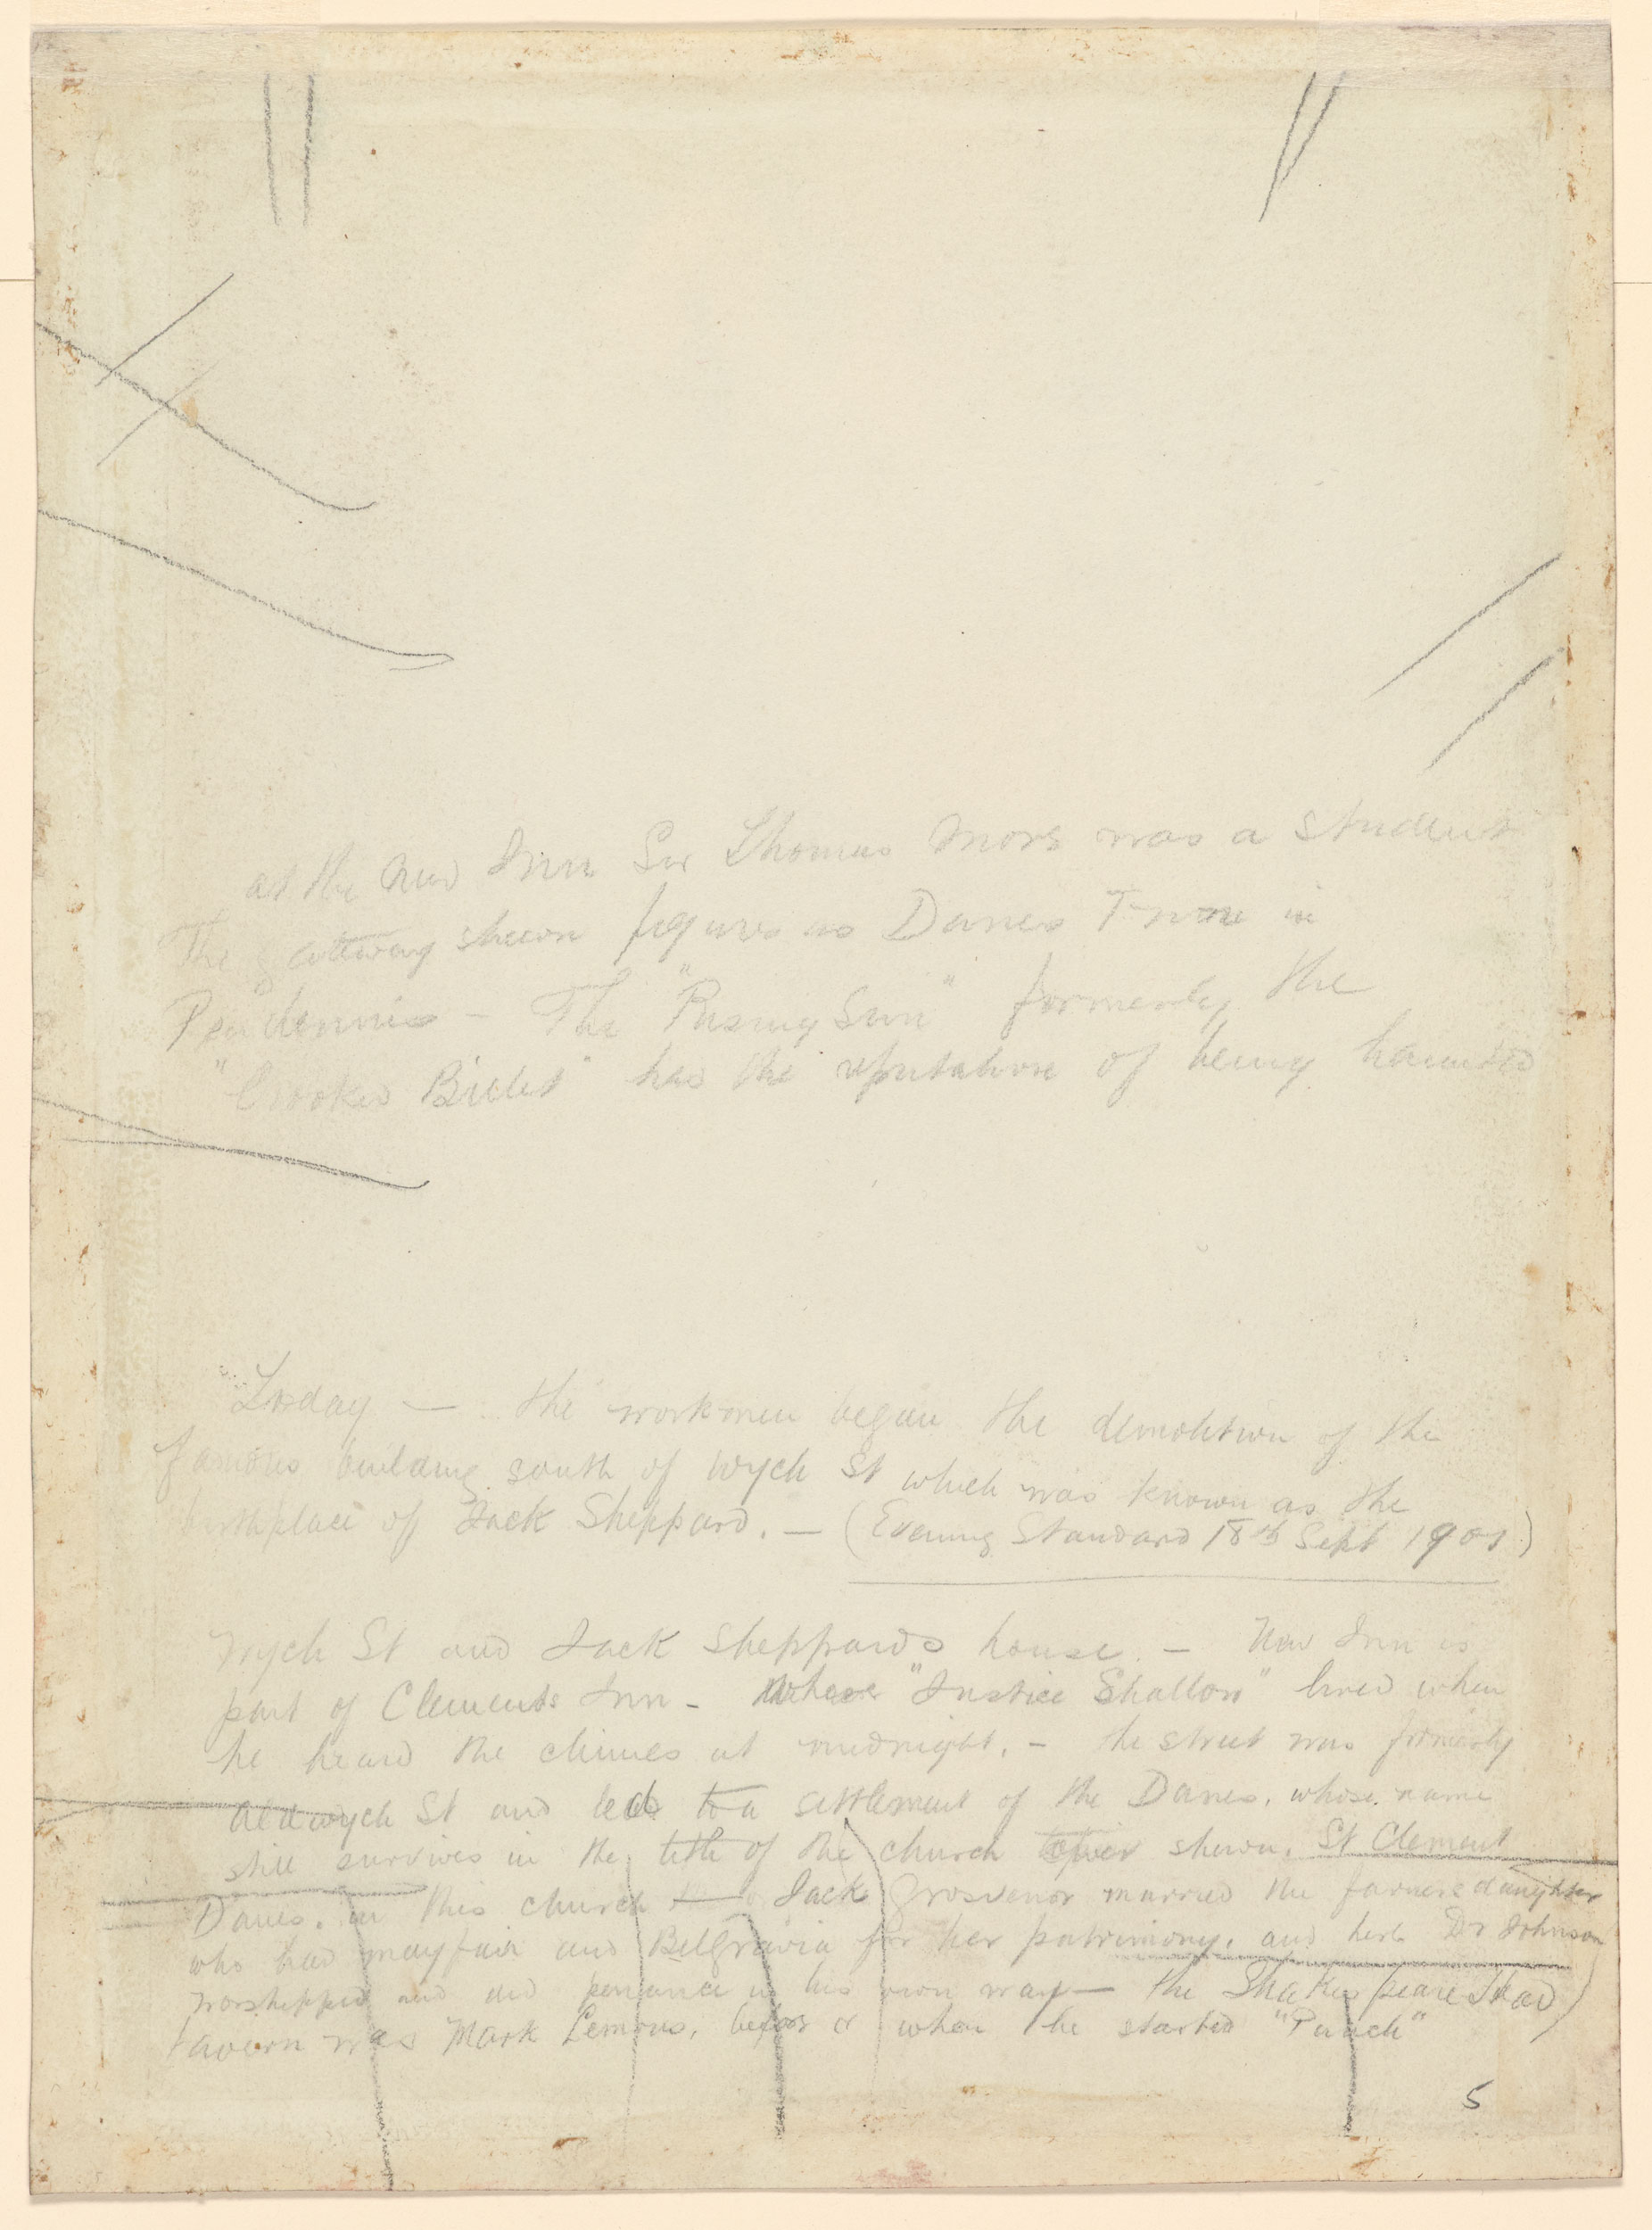 at the New Inn Sir Thomas More was a student
The gateway shewn figures as Danes Inn in
Pendennis – The "Rising Sun" formerly the
"Crooked Billet" has the reputation of being haunted
"Today — the workmen began the demolition of the
famous building south of Wych St which was known as the
birthplace of Jack Sheppard. — (Evening Standard 18th Sept 1901)
Wych St and Jack Sheppards house. – New Inn is
part of Clements Inn – where "Justice Shallow" lived when
he heard the chimes at midnight. – the street was formerly
Aldwych St and led to a settlement of the Danes, whose name
still survives in the title of the church shewn, St Clement
Danes. in this church — Jack Grosvenor married the farmers daughter
who had mayfair and Belgravia for her patrimony, and here Dr Johnson
worshipped and did penance in his own way — the Shakespeare Head)
tavern was Mark Lemons, before or when he started "Punch"
5